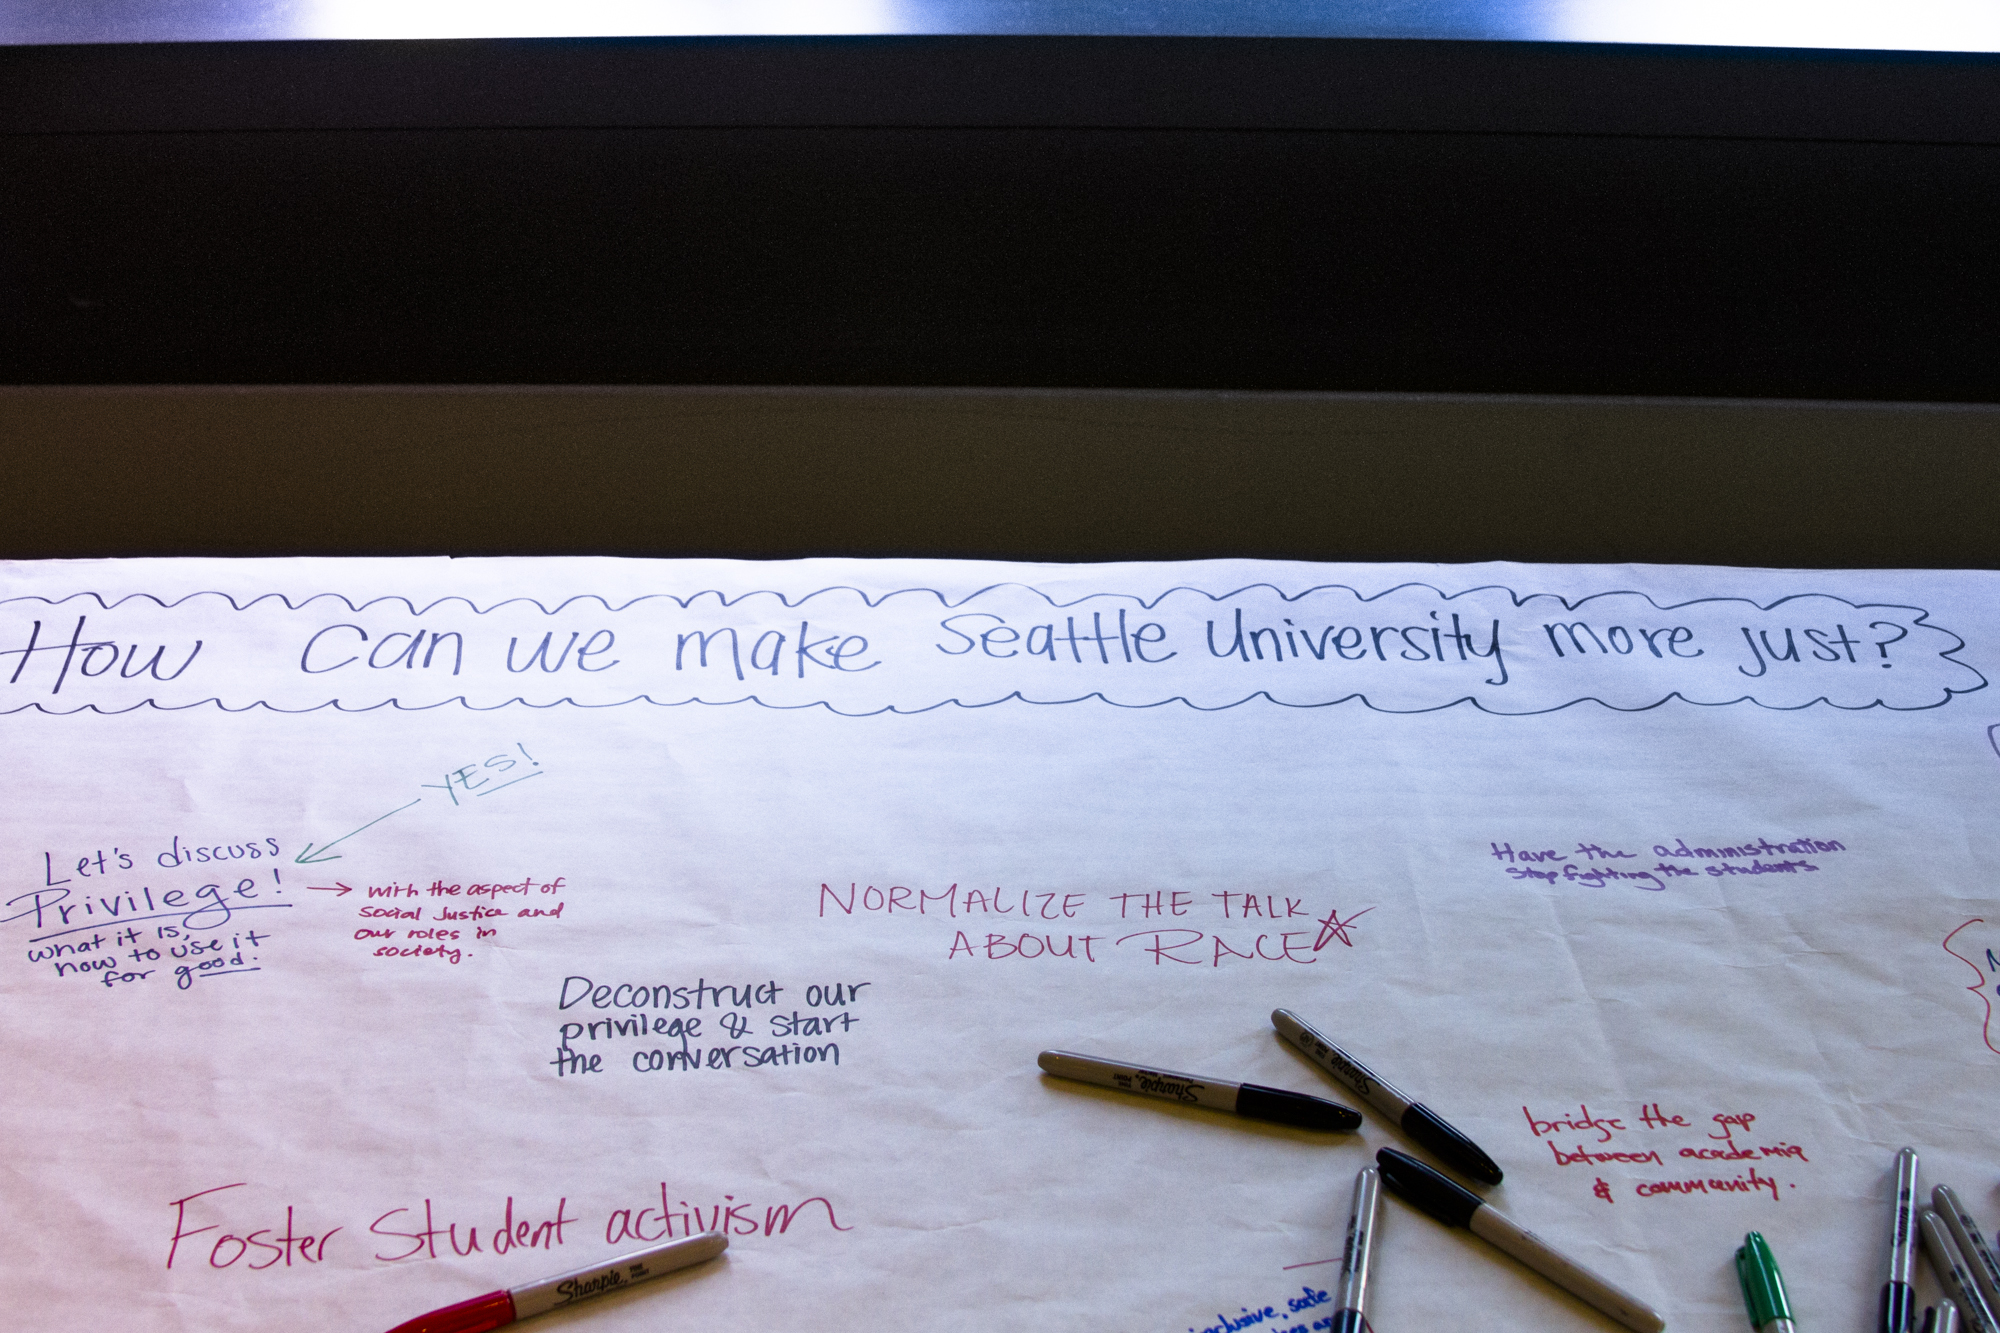 How can we make Seattle University more just?
YES!
Let's discuss
Privilege!
what it is,
how to use it
for good.
→ with the aspect of
social Justice and
our roles in
society.
NORMALIZE THE TALK
ABOUT RACE
Have the administration
stop fighting the students
Deconstruct our
privilege & start
the conversation
bridge the gap
between academia
& community.
Foster Student activism
Sharpie
Sharpie
Sharpie
inclusive, safe